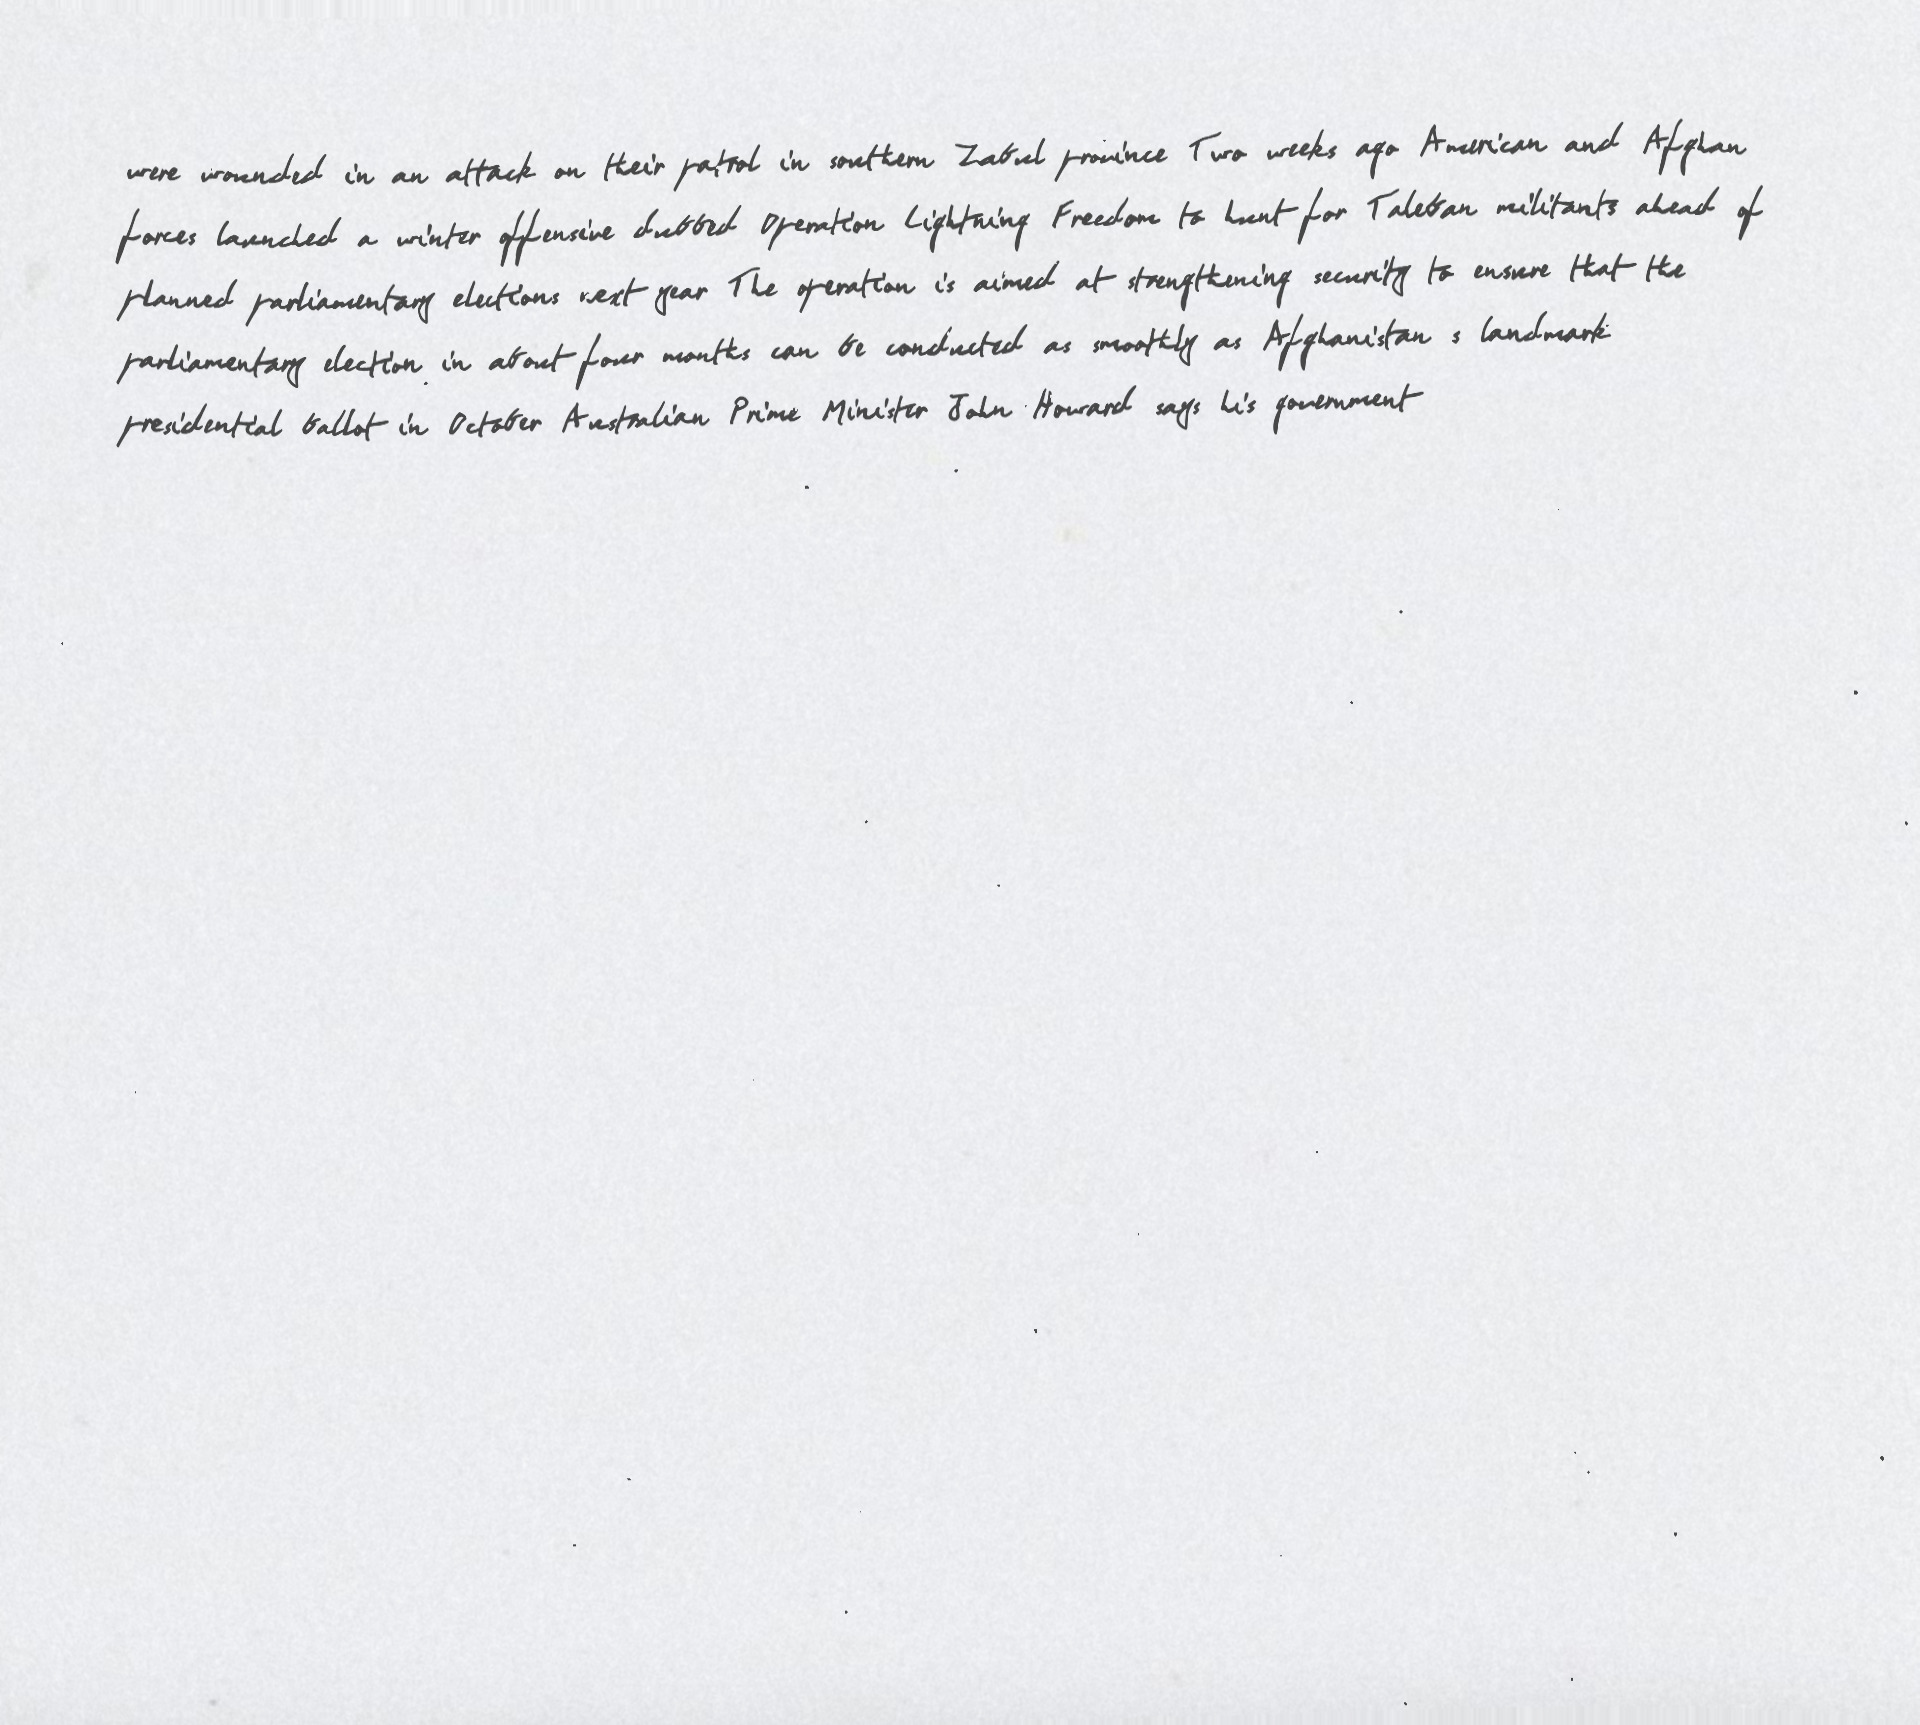 were wounded in an attack on their patrol in southern Zabul province Two weeks ago American and Afghan
forces launched a winter offensive dubbed Operation Lightning Freedom to hunt for Taleban militants ahead of
planned parliamentary elections next year The operation is aimed at strengthening security to ensure that the
parliamentary election in about four months can be conducted as smoothly as Afghanistan s landmark
presidential ballot in October Australian Prime Minister John Howard says his government